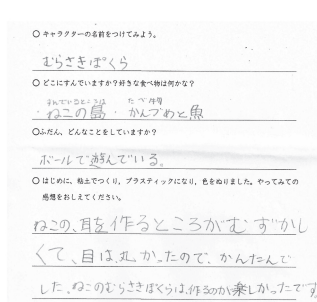 ○ キャラクターの名前をつけてみよう。
むらさきぽくら
○ どこにすんでいますか？好きな食べ物は何かな？
すんでいるところは たべ物
・ねこの島 ・かんづめと魚
○ふだん、どんなことをしていますか？
ボールで遊んでいる。
○ はじめに、粘土でつくり、プラスティックになり、色をぬりました。やってみての
感想をおしえてください。
ねこの、耳を作るところがむずかし
くて、目は、丸かったので、かんたんで
した。ねこのむらさきぽくらは、作るのが楽しかったです。